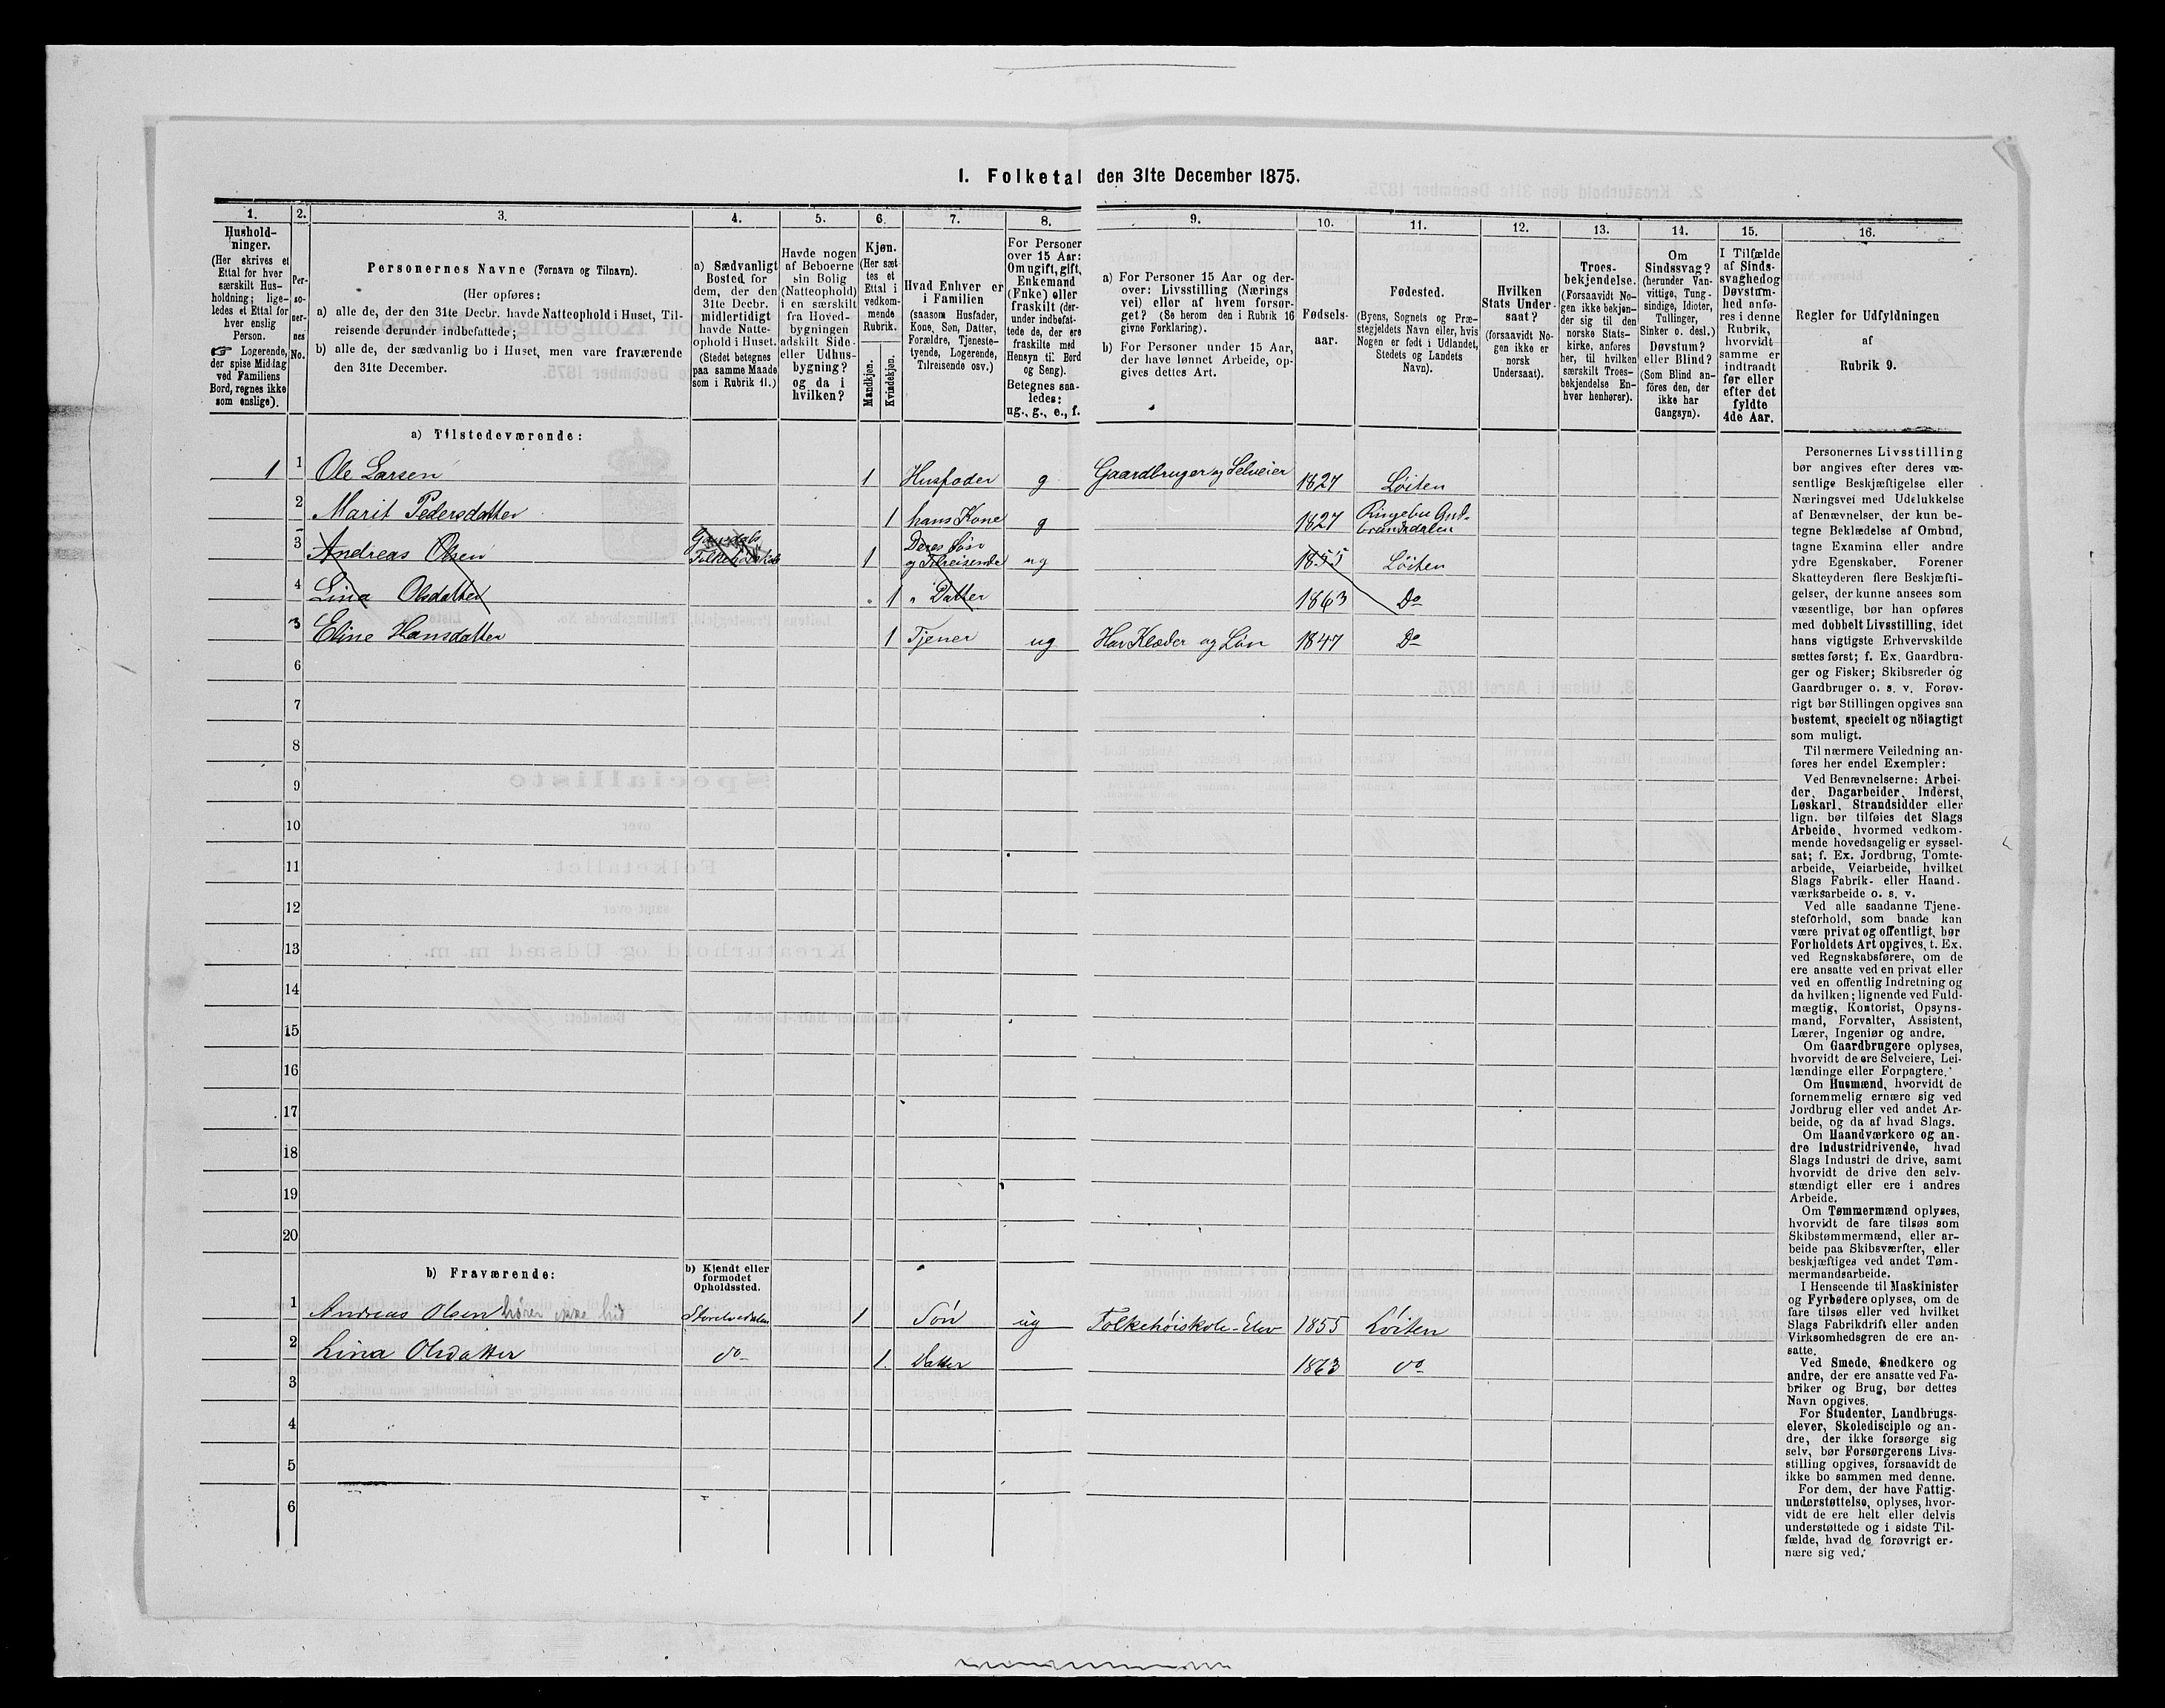 I. Folketal den 31te December 1875.
1. 2. 3. 4. 5. 6. 7. 8. 9. 10. 11. 12. 13. 14. 15. 16.
Hushold-
ninger.
(Her skrives et
Ettal for hver
særskilt Hus-
holdning; lige-
ledes et Ettal for
hver enslig
Person.
☞ Logerende,
der spise Middag
ved Familiens
Bord, regnes ikke
som enslige).
Per-
so-
ner-
nes
No.
Personernes Navne (Fornavn og Tilnavn).
(Her opføres:
a) alle de, der den 31te Decbr. havde Natteophold i Huset, Til-
reisende derunder indbefattede;
b) alle de, der sædvanlig bo i Huset, men vare fraværende
den 31te December.
a) Sædvanligt
Bosted for
dem, der den
31te Decbr.
midlertidigt
havde Natte-
ophold i Huset.
(Stedet betegnes
paa samme Maade
som i Rubrik 11.)
Havde nogen
af Beboerne
sin Bolig
(Natteophold)
i en særskilt
fra Hoved-
bygningen
adskilt Side-
eller Udhus-
bygning?
og da i
hvilken?
Kjøn.
(Her sæt-
tes et
Ettal i
vedkom-
mende
Rubrik.
Mandkjøn.
Kvindekjøn.
Hvad Enhver er
i Familien
(saasom Husfader,
Kone, Søn, Datter,
Forældre, Tjeneste-
tyende, Logerende,
Tilreisende osv.)
For Personer
over 15 Aar:
Om ugift, gift,
Enkemand
(Enke) eller
fraskilt (der-
under indbefat-
tede de, der ere
fraskilte med
Hensyn til Bord
og Seng).
Betegnes saa-
ledes:
ug., g., e., f.
a) For Personer 15 Aar og der-
over: Livsstilling (Nærings
vei) eller af hvem forsør-
get? (Se herom den i Rubrik 16
givne Forklaring).
b) For Personer under 15 Aar,
der have lønnet Arbeide, op-
gives dettes Art.
Fødsels-
aar.
Fødested.
(Byens, Sognets og Præ-
stegjeldets Navn eller, hvis
Nogen er født i Udlandet,
Stedets og Landets
Navn).
Hvilken
Stats Under-
saat?
(forsaavidt No-
gen ikke er
norsk
Undersaat).
Troes-
bekjendelse.
(Forsaavidt No-
gen ikke bekjen-
der sig til den
norske Stats-
kirke, anføres
her, til hvilken
særskilt Troes-
bekjendelse En-
hver henhører).
Om
Sindssvag?
(herunder Van-
vittige, Tung-
sindige, Idioter,
Tullinger,
Sinker o. desl.)
Døvstum?
eller Blind?
(Som Blind an-
föres den, der
ikke har
Gangsyn).
I Tilfælde
af Sinds-
svaghed og
Døvstum-
hed anfø-
res i denne
Rubrik,
hvorvidt
samme er
indtraadt
før eller
efter det
fyldte
4de Aar.
Regler for Udfyldningen
af
Rubrik 9.
a) Tilstedeværende:
1 1 Ole Larsen 1 Husfader g Gaardbruger og Selveier 1827 Løiten
2 Marit Pedersdatter 1 hans Kone g 1827 Ringebu Gud-
brandsdalen
3 Andreas Olsen Gausdals
Folkehøiskole 1 Deres Søn
og Tilreisende ug 1855 Løiten
4 Lina Olsdatter 1 " Datter 1863 Do
3 Eline Hansdatter 1 Tjener ug Har Klæder og Løn 1847 Do
6
7
8
9
10
11
12
13
14
15
16
17
18
19
20
b) Fraværende:
b) Kjendt eller
formodet
Opholdssted.
1 Andreas Olsen hører ikke hid Storelvedalen 1 Søn ug Folkehöiskole-Elev 1855 Löiten
2 Lina Olsdatter do 1. Datter 1863 do
3
4
5
6
Personernes Livsstilling
bør angives efter deres væ-
sentlige Beskjæftigelse eller
Næringsvei med Udelukkelse
af Benævnelser, der kun be-
tegne Beklædelse af Ombud,
tagne Examina eller andre
ydre Egenskaber. Forener
Skatteyderen flere Beskjæfti-
gelser, der kunne ansees som
væsentlige, bør han opføres
med dobbelt Livsstilling, idet
hans vigtigste Erhvervskilde
sættes først; f. Ex. Gaardbru-
ger og Fisker; Skibsreder og
Gaardbruger o. s. v. Forøv-
rigt bør Stillingen opgives saa
bestemt, specielt og nöiagtigt
som muligt.
Til nærmere Veiledning an-
føres her endel Exempler:
Ved Benævnelserne: Arbei-
der, Dagarbeider, Inderst,
Løskarl, Strandsidder eller
lign. bør tilføies det Slags
Arbeide, hvormed vedkom-
mende hovedsagelig er syssel-
sat; f. Ex. Jordbrug, Tomte-
arbeide, Veiarbeide, hvilket
Slags Fabrik- eller Haand-
værksarbeide o. s. v.
Ved alle saadanne Tjene-
steforhold, som baade kan
være privat og offentligt, bør
Forholdets Art opgives, t. Ex.
ved Regnskabsførere, om de
ere ansatte ved en privat eller
ved en offentlig Indretning og
da hvilken; lignende ved Fuld-
mægtig, Kontorist, Opsyns-
mand, Forvalter, Assistent,
Lærer, Ingeniør og andre.
Om Gaardbrugere oplyses,
hvorvidt de ere Selveiere, Lei-
lændinge eller Forpagtere.
Om Husmænd, hvorvidt de
fornemmelig ernære sig ved
Jordbrug eller ved andet Ar-
beide, og da af hvad Slags.
Om Haandværkere og an-
dre Industridrivende, hvad
Slags Industri de drive, samt
hvorvidt de drive den selv-
stændigt eller ere i andres
Arbeide.
Om Tømmermænd oplyses,
hvorvidt de fare tilsøs som
Skibstømmermænd, eller ar-
beide paa Skibsværfter, eller
beskjæftiges ved andet Tøm-
mermandsarbeide.
I Henseende til Maskinister
og Fyrbødere oplyses, om de
fare tilsøs eller ved hvilket
Slags Fabrikdrift eller anden
Virksomhedsgren de ere an-
satte.
Ved Smede, Snedkere og
andre, der ere ansatte ved Fa-
briker og Brug, bør dettes
Navn opgives.
For Studenter, Landbrugs-
elever, Skoledisciple og an-
dre, der ikke forsørge sig
selv, bør Forsørgerens Livs-
stilling opgives, forsaavidt de
ikke bo sammen med denne.
For dem, der have Fattig-
understøttelse, oplyses, hvor-
vidt de ere helt eller delvis
understøttede og i sidste Til-
fælde, hvad de forøvrigt er-
nære sig ved.